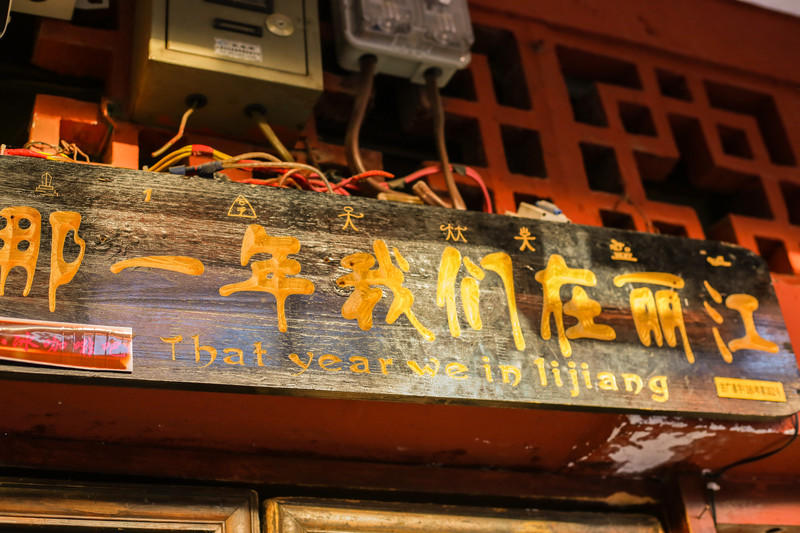 那一年我们在丽江
That year we in lijiang